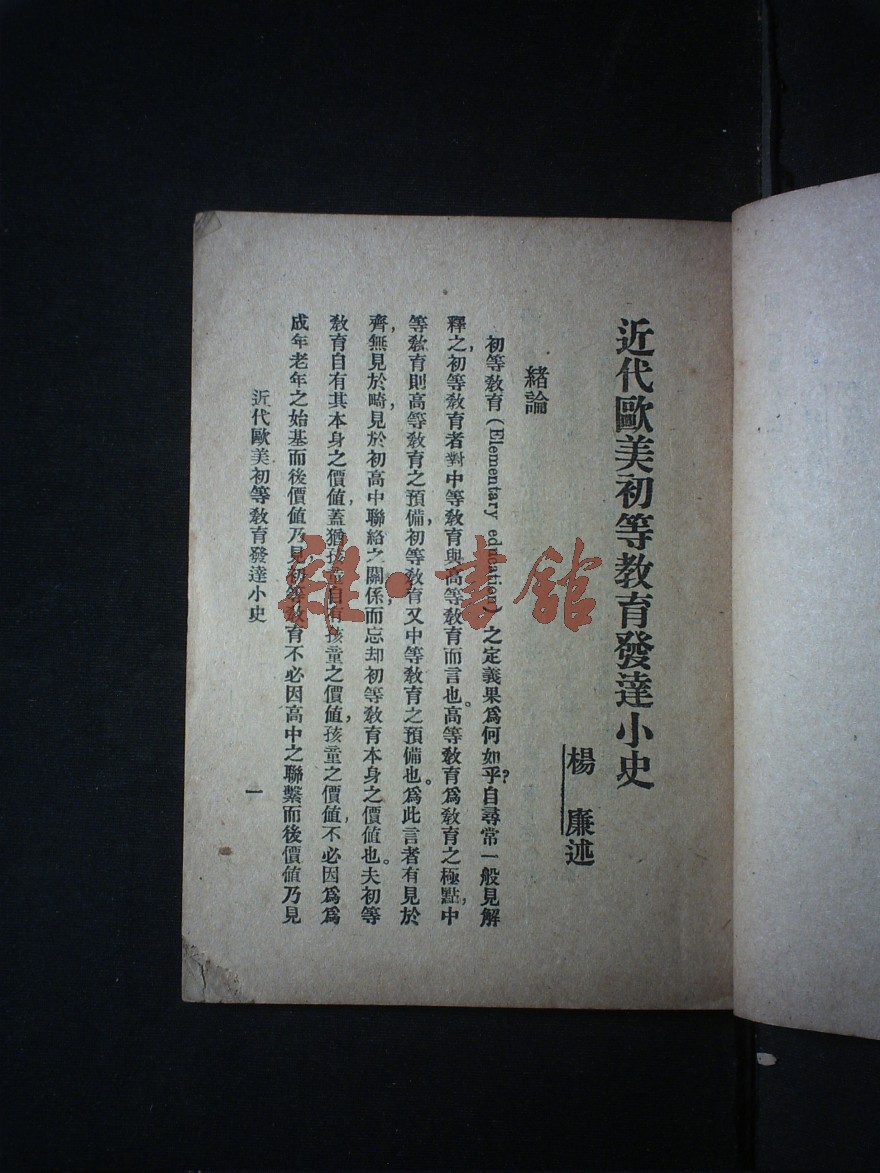 近代歐美初等教育發達小史
楊廉述
緒論
初等教育(Elementary education)之定義果爲何如乎?自尋常一般見解
釋之,初等教育者對中等教育與高等教育而言也。高等教育爲教育之極點,中
等教育則高等教育之預備,初等教育又中等教育之預備也。爲此言者有見於
齊,無見於畸,見於初高中聯絡之關係,而忘却初等教育本身之價値也。夫初等
教育自有其本身之價値,蓋猶孩童自有孩童之價値,孩童之價値,不必因爲爲
成年老年之始基而後價値乃見,初等教育不必因高中之聯繫而後價値乃見
近代歐美初等教育發達小史
一
雜·書館